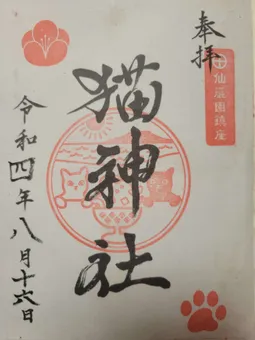 奉拝
仙巌園鎮座
猫神社
令和四年八月十六日